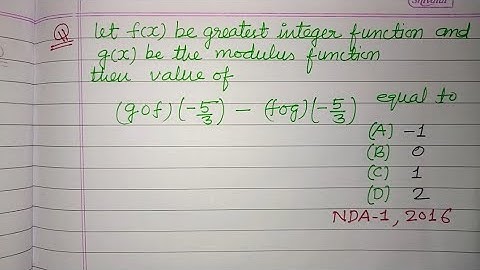 Shivalal
Q let f(x) be greatest integer function and
g(x) be the modulus function
then value of
(gof)(-5/3) - (fog)(-5/3) equal to
(A) -1
(B) 0
(C) 1
(D) 2
NDA-1, 2016